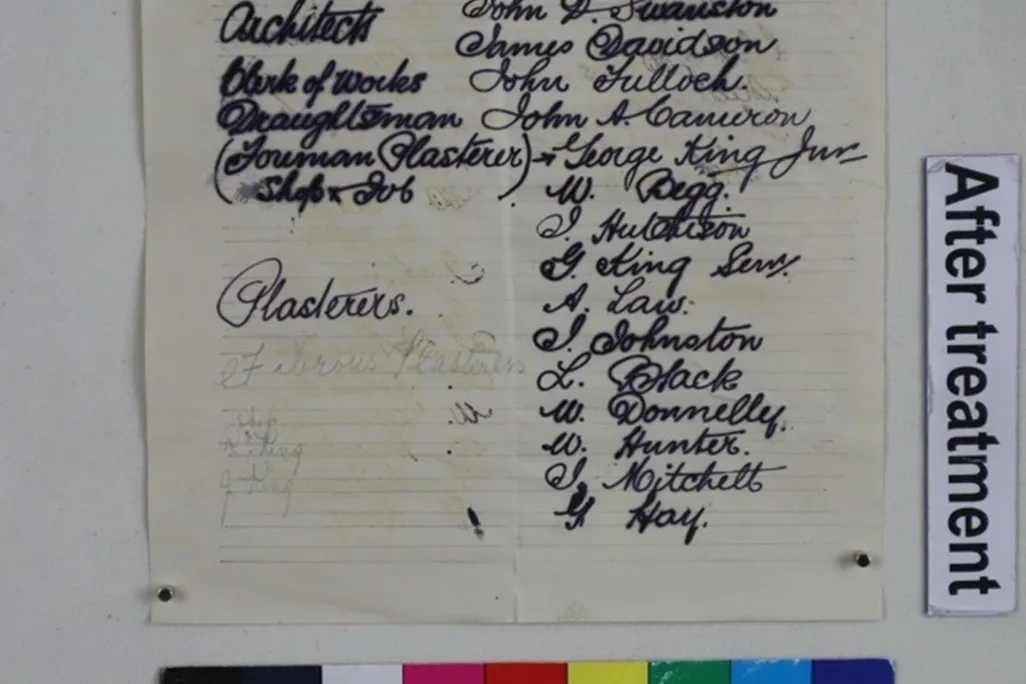 John D. Swanston
Architects
James Davidson
Clerk of Works John Tulloch.
Draughtsman John A. Cameron
(Foreman Plasterer) George King Jun
Shop & Job
W. Begg.
J. Hutchison
G. King Sen.
A. Law.
Plasterers.
J. Johnston
Fibrous Plasterers
L. Black
W. Donnelly.
W. Hunter.
J. Mitchell
J King
G. Hay.
After treatment